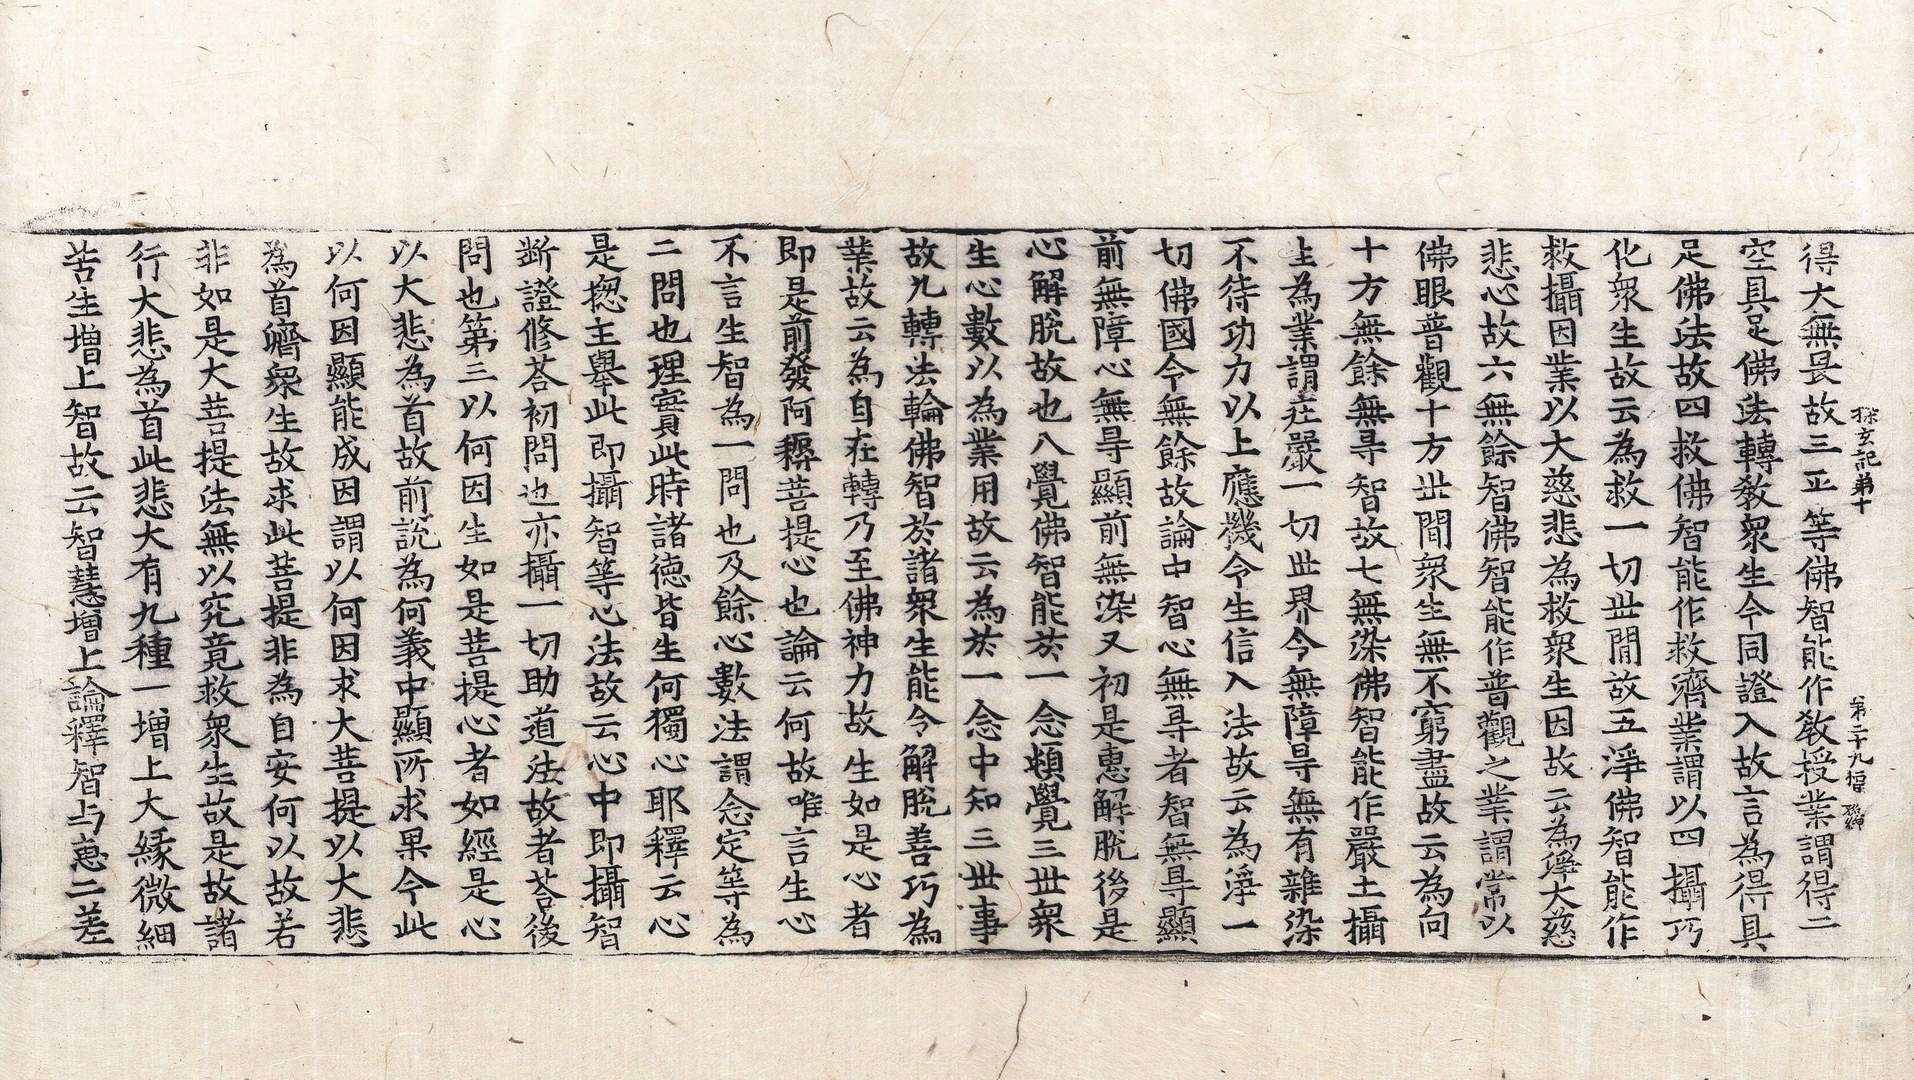 探玄記第十
第二十九幅
得大無畏故三正等佛智能作教授業謂得二
空具足佛法轉教衆生令同證入故言為得具
足佛法故四救佛智能作救濟業謂以四攝巧
化衆生故云為救一切世間故五淨佛智能作
救攝因業以大慈悲為救衆生因故云為淨大慈
悲心故六無餘智佛智能作普觀之業謂常以
佛眼普觀十方世間衆生無不窮盡故云為向
十方無餘無㝵智故七無染佛智能作嚴土攝
生為業謂莊嚴一切世界令無障㝵無有雜染
不待功力以上應機令生信入法故云為淨一
切佛國令無餘故論中智心無㝵者智無㝵顯
前無障心無㝵顯前無染又初是惠解脫後是
心解脫故也八覺佛智能於一念頓覺三世衆
生心數以為業用故云為於一念中知三世事
故九轉法輪佛智於諸衆生能令解脫善巧為
業故云為自在轉乃至佛神力故生如是心者
即是前發阿耨菩提心也論云何故唯言生心
不言生智為一問也及餘心數法謂念定等為
二問也理實此時諸徳皆生何獨心耶釋云心
是揔主舉此即攝智等心法故云心中即攝智
斷證修荅初問也亦攝一切助道法故者荅後
問也第三以何因生如是菩提心者如經是心
以大悲為首故前説為何義中顯所求果今此
以何因顯能成因謂以何因求大菩提以大悲
為首濟衆生故求此菩提非為自安何以故若
非如是大菩提法無以究竟救衆生故是故諸
行大悲為首此悲大有九種一增上大緣微細
苦生增上智故云智慧增上論釋智与惠二差